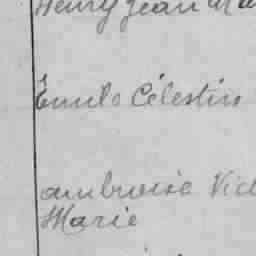 Henry Jean Ma
Émile Célestin
Ambroise Vict
Marie